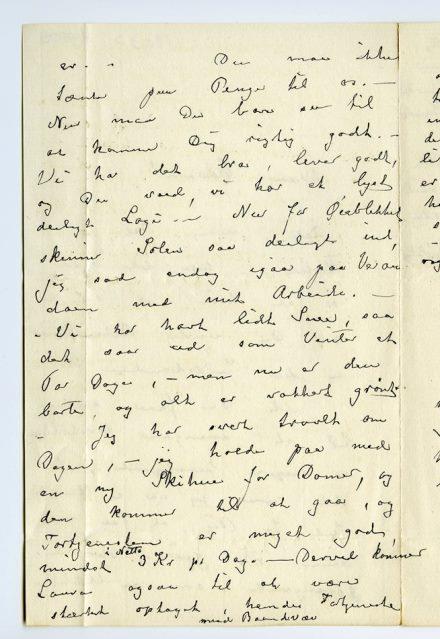 er. - Du maa ikke
tænke paa Penge til os. —
Nu maa Du bare se til
at komme Dig rigtig godt. —
Vi har det bra, lever godt,
og Du veed, vi har et lyst
deiligt Logi — Nu for Øieblikket
skinner Solen saa deiligt ind,
jeg sad endog igaar paa Veran
daen med mit Arbeide. —
- Vi har havt lidt Snee, saa
det saa ud som Vinter et
Par Dage, — men nu er den
borte, og alt er vakkert grønt.
- Jeg har svært travlt om
Dagen, — jeg holder paa med
en ny Skihue for Damer, og
den kommer til at gaa, og
Fortjenesten er meget god,
mindst i Netto 3 Kr pr Dag. — Derved kommer
Laura ogsaa til at være
stærkt optaget, hendes Fortjeneste
med Baandvæv